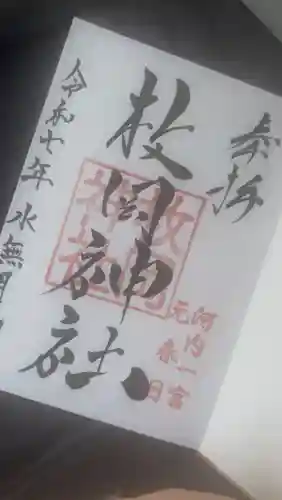 奉拝
河内一宮
元春日
枚岡神社
枚岡
神社
令和七年水無月